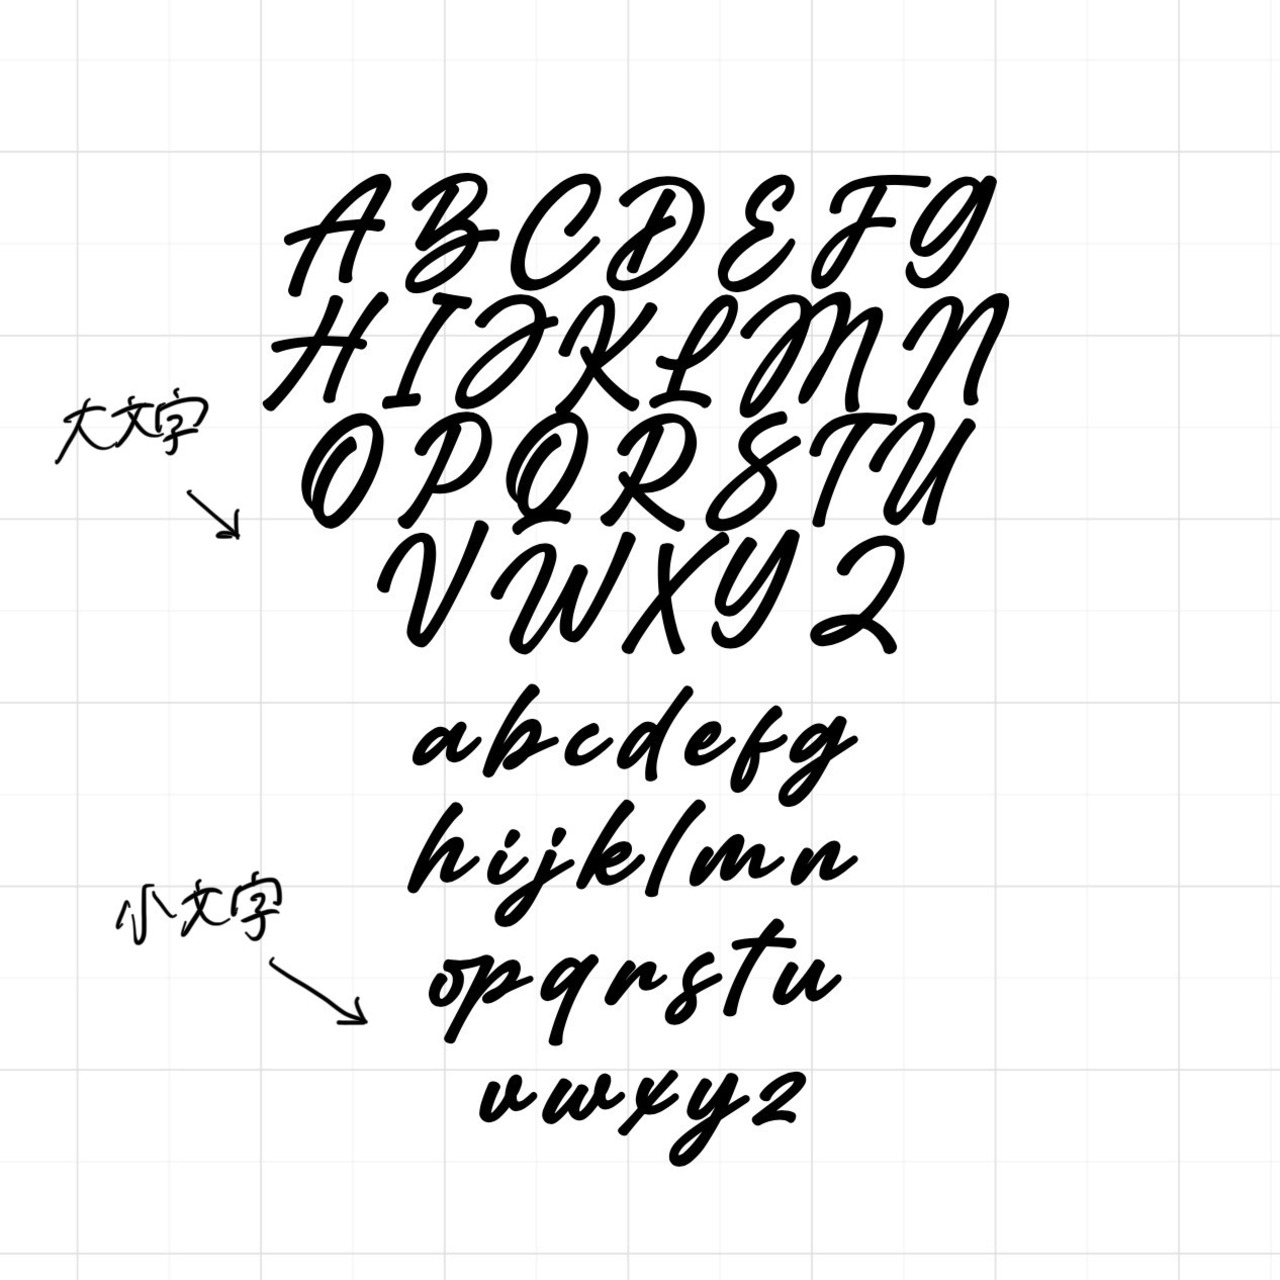 ABCDEFG
HIJKLMN
大文字
OPQRSTU
VWXYZ
abcdefg
hijklmn
小文字
opqrstu
vwxyz